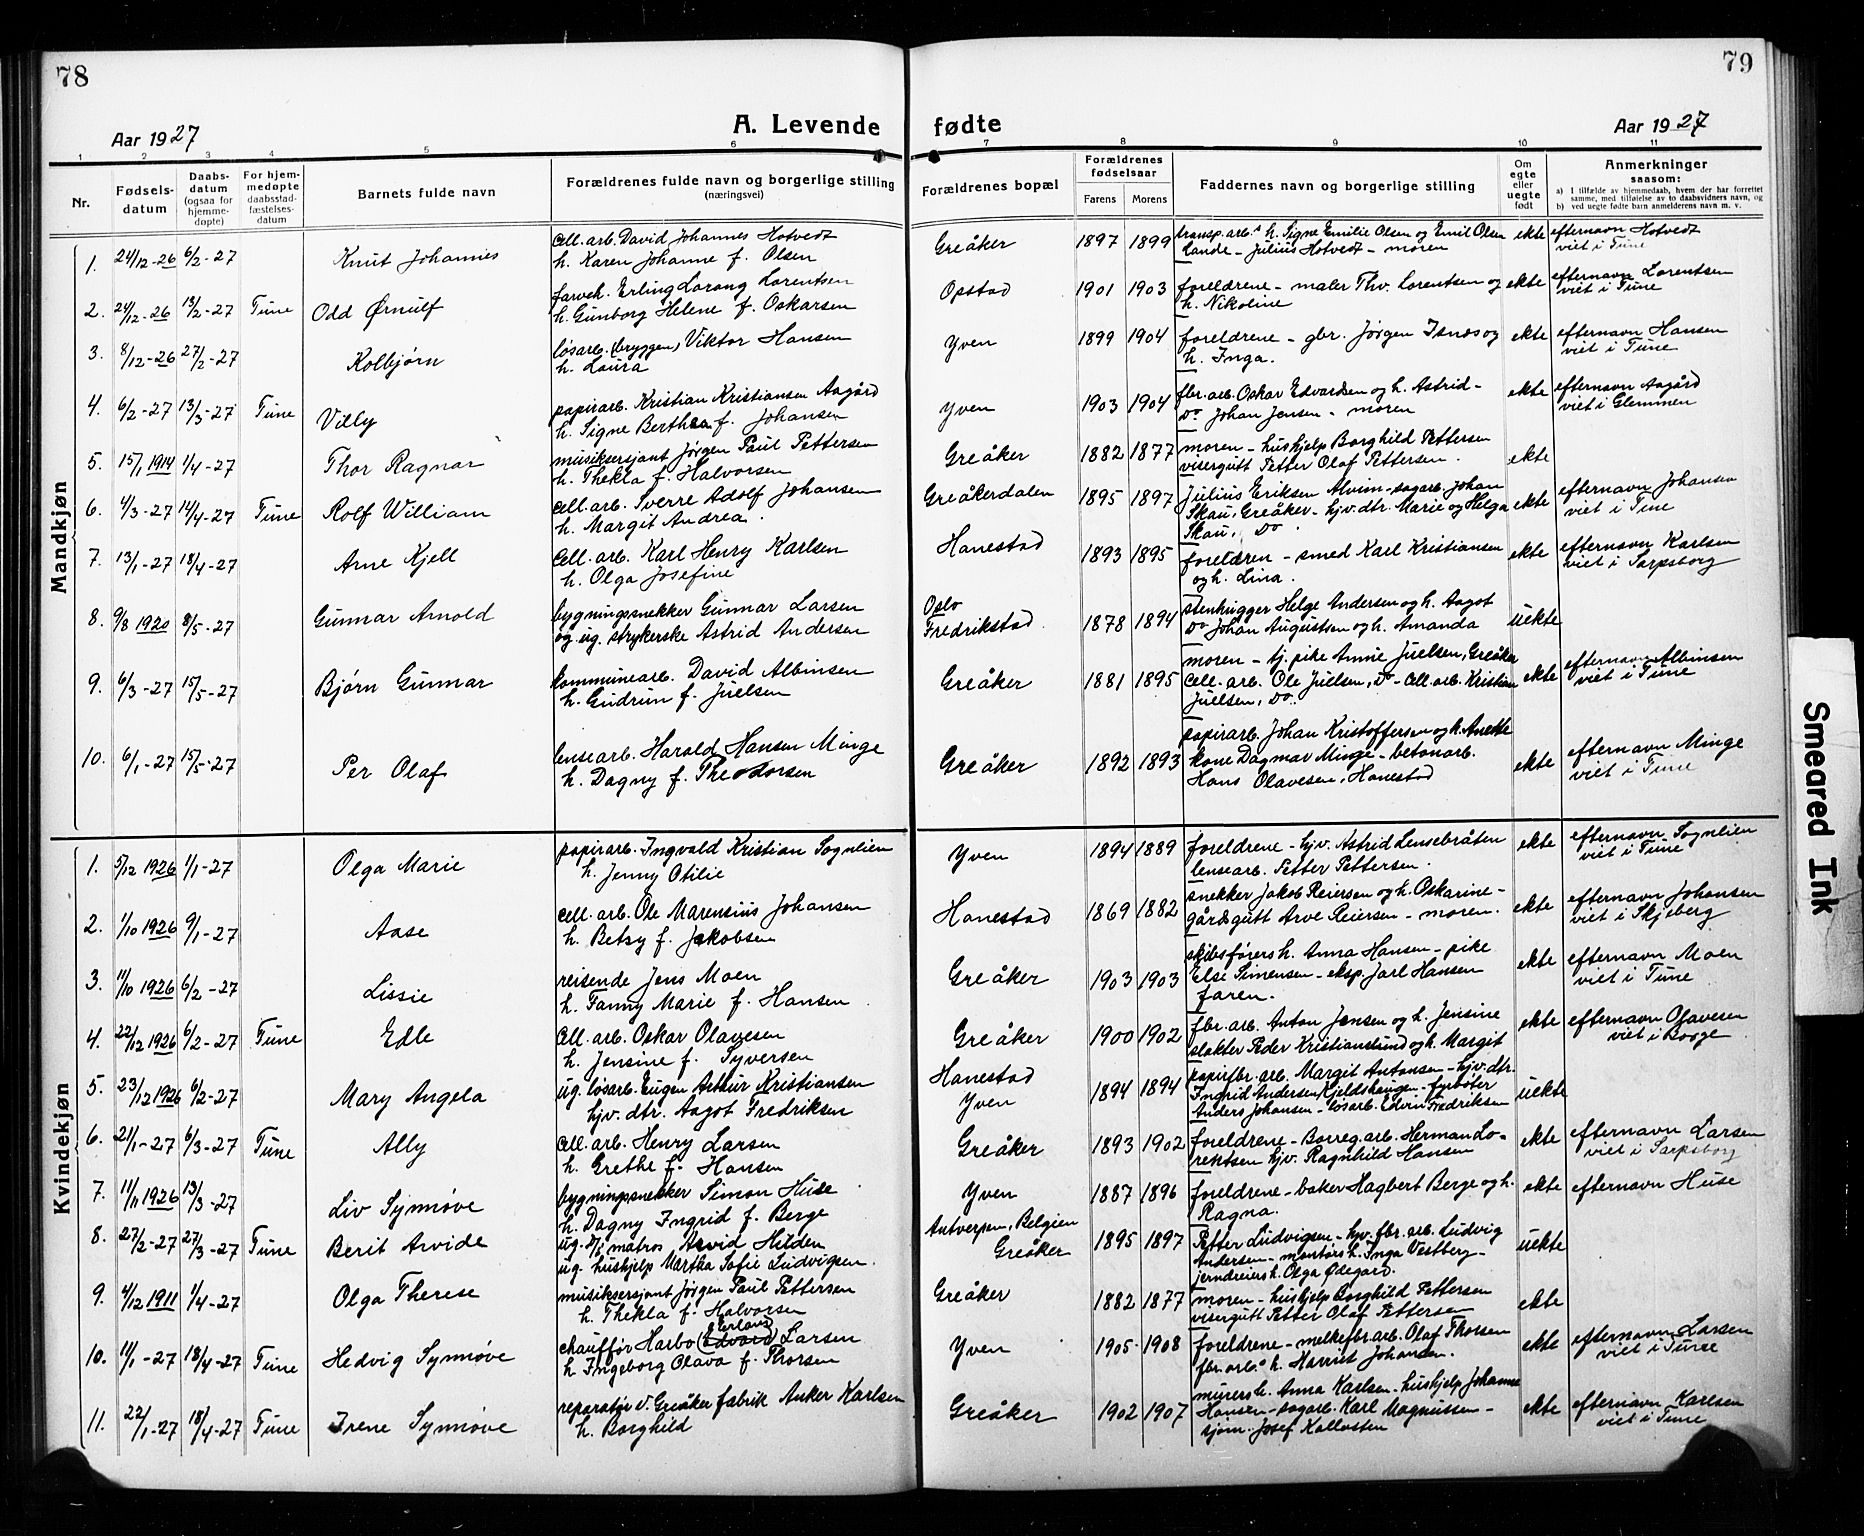 78
79
Aar 1927
A. Levende fødte
Aar 1927
1 2 3 4 5 6 7 8 9 10 11
Nr.
Fødsels-
datum
Daabs-
datum
(ogsaa for
hjemme-
døpte)
For hjem-
medøpte
daabsstad-
fæstelses-
datum
Barnets fulde navn
Forældrenes fulde navn og borgerlige stilling
(næringsvei)
Forældrenes bopæl
Forældrenes
fødselsaar
Farens Morens
Faddernes navn og borgerlige stilling
Om
egte
eller
uegte
født
Anmerkninger
saasom:
a) I tilfælde av hjemmedaab, hvem der har forrettet
samme, med tilføielse av to daabsvidners navn, og
b) ved uegte fødte barn anmelderens navn m. v.
Mandkjøn
1. 24/12-26 6/2-27 Knut Johannes
cell. arb. David Johannes Hotvedt
h. Karen Johanne f. Olsen
Greåker 1897 1899
transp. arb.s h. Signe Emilie Olsen og Emil Olsen
Lande - Julius Hotvedt - moren
ekte
efternavn Hotvedt
viet i Tune
2. 24/12-26 13/2-27 Tune Odd Ørnulf
farveh. Erling Lorang Lorentsen
h. Gunborg Helene f. Oskarsen
Opstad 1901 1903
foreldrene - maler Thv. Lorentsen og
h. Nikoline
ekte
efternavn Lorentsen
viet i Tune
3. 8/12-26 27/2-27 Kolbjørn
løsarb. (bryggen) Viktor Hansen
h. Laura
Yven 1899 1904
foreldrene - gbr. Jørgen Isnes og
h. Inga.
ekte
efternavn Hansen
viet i Tune
4. 6/2-27 13/3-27 Tune Villy
papirarb. Kristian Kristiansen Aagård
h. Signe Berthea f. Johansen
Yven 1903 1904
fbr. arb. Oskar Edvardsen og h. Astrid -
Do Johan Jensen - moren
ekte
efternavn Aagård
viet i Glemmen
5. 15/1 1914 1/4-27 Thor Ragnar
musiksersjant Jørgen Paul Pettersen
h. Thekla f. Halvorsen
Greåker 1882 1877
moren - hushjelp Borghild Pettersen
visergutt Petter Olaf Pettersen.
ekte
6. 4/3-27 14/4-27 Tune Rolf William
cell. arb. Sverre Adolf Johansen
h. Margit Andrea.
Greåkerdalen 1895 1897
Julius Eriksen Alvim - sagarb. Johan
Skau, Greåker - hjv. dtr. Marie og Helga
Skau, Do
ekte
efternavn Johansen
viet i Tune
7. 13/1-27 18/4-27 Arne Kjell
cell. arb. Karl Henry Karlsen
h. Olga Josefine
Hanestad 1893 1895
foreldren - smed Karl Kristiansen
og h. Lina.
ekte
efternavn Karlsen
viet i Sarpsborg
8. 9/8 1920 8/5-27 Gunnar Arnold
bygningssnekker Gunnar Larsen
og ug. strykerske Astrid Andersen
Oslo
Fredrikstad. 1878 1894
stenhugger Helge Andersen og h. Aagot
Do Johan Augustsen og h. Amanda
uekte
9. 6/3-27 15/5-27 Bjørn Gunnar
kommunearb. David Albinsen
h. Gudrun f. Juelsen
Greåker 1881 1895
moren - tj. pike Annie Juelsen, Greåker
cell. arb. Ole Juelsen, Do - cell. arb. Kristian
Juelsen, Do.
ekte
efternavn Albinsen
viet i Tune
10. 6/1-27 15/5-27 Per Olaf
lensearb. Harald Hansen Minge
h. Dagny f. Theodorsen
Greåker 1892 1893
papirarb. Johan Kristoffersen og h. Anette
kone Dagmar Minge - betonarb.
Hans Olavesen, Hanestad
ekte
efternavn Minge
viet i Tune
Kvindekjøn
1. 5/12 1926 1/1-27 Olga Marie
papirarb. Ingvald Kristian Sognlien
h. Jenny Otilie
Yven 1894 1889
foreldrene - hjv. Astrid Lensebråten
lensearb. Petter Pettersen.
ekte
efternavn Sognlien
viet i Tune
2. 1/10 1926 9/1-27 Aase
cell. arb. Ole Marensius Johansen
h. Betsy f. Jakobsen
Hanestad 1869 1882
snekker Jakob Reiersen og h. Oskarine -
gårdsgutt Arve Reiersen - moren.
ekte
efternavn Johansen
viet i Skjeberg
3. 11/10 1926 6/2-27 Lissie
reisende Jens Moen
h. Fanny Marie f. Hansen
Greåker 1903 1903
skibsførers h. Anna Hansen - pike
Else Simensen - eksp. Jarl Hansen
faren.
ekte
efternavn Moen
viet i Tune
4. 22/12 1926 6/2-27 Tune Edle
cell. arb. Oskar Olavesen
h. Jensine f. Syversen
Greåker 1900 1902
fbr. arb. Anton Jensen og h. Jensine
slakter Peder Kristianslund og h. Margit
ekte
efternavn Olavesen
viet i Borge
5. 23/12 1926 6/2-27 Mary Angela
ug. løsarb. Eugen Arthur Kristiansen
hjv. dtr. Aagot Fredriksen
Hanestad
Yven 1894 1894
papirfbr. arb. Margit Antonsen - hjv. dtr.
Ingrid Andersen, Kjeldshaugen - fyrbøter
Anders Johansen - løsarb. Edvin Fredriksen
uekte
6. 21/1-27 6/3-27 Tune Ally
cell. arb. Henry Larsen
h. Grethe f. Hansen
Greåker 1893 1902
foreldrene - Borreg. arb. Herman Lo-
rentsen hjv. Ragnhild Hansen
ekte
efternavn Larsen
viet i Sarpsborg
7. 11/11 1926 13/3-27 Liv Synnøve
bygningssnekker Simon Huse
h. Dagny Ingrid f. Berge
Yven 1887 1896
foreldrene - baker Hagbert Berge og h.
Ragna.
ekte
efternavn Huse
8. 27/2-27 27/3-27 Tune Berit Arvide
ug. matros Arvid Hilden
ug. hushjelp Martha Sofie Ludvigsen.
Antverpen, Belgien
Greåker 1895 1897
Petter Ludvigsen - hjv. fbr. arb. Ludvig
Andersen - montørs h. Inga Vestberg -
jerndreiers h. Olga Ødegard.
uekte
9. 4/12 1911 1/4-27 Olga Therese
musiksersjant Jørgen Paul Pettersen
h. Thekla f. Halvorsen
Greåker 1882 1877
moren - hushjelp Borghild Pettersen
visergutt Petter Olaf Pettersen
ekte
10. 11/1-27 18/4-27 Tune Hedvig Synnøve
Erland
chauffør Harbo (Edvard) Larsen
h. Ingeborg Olava f. Thorsen
Yven 1905 1908
foreldrene - melkefbr. arb. Olaf Thorsen
fbr. arb.s h. Harriet Johansen.
ekte
efternavn Larsen
viet i Tune
11. 22/1-27 18/4-27 Tune Irene Synnøve
reparatør v. Greåker fabrik Anker Karlsen
h. Borghild
Greåker 1902 1907
murers h. Anna Karlsen - hushjelp Johanne
Hansen - sagarb. Karl Magnussen -
sjøm. Josef Kallosten
ekte
efternavn Karlsen
viet i Tune
Smeared Ink